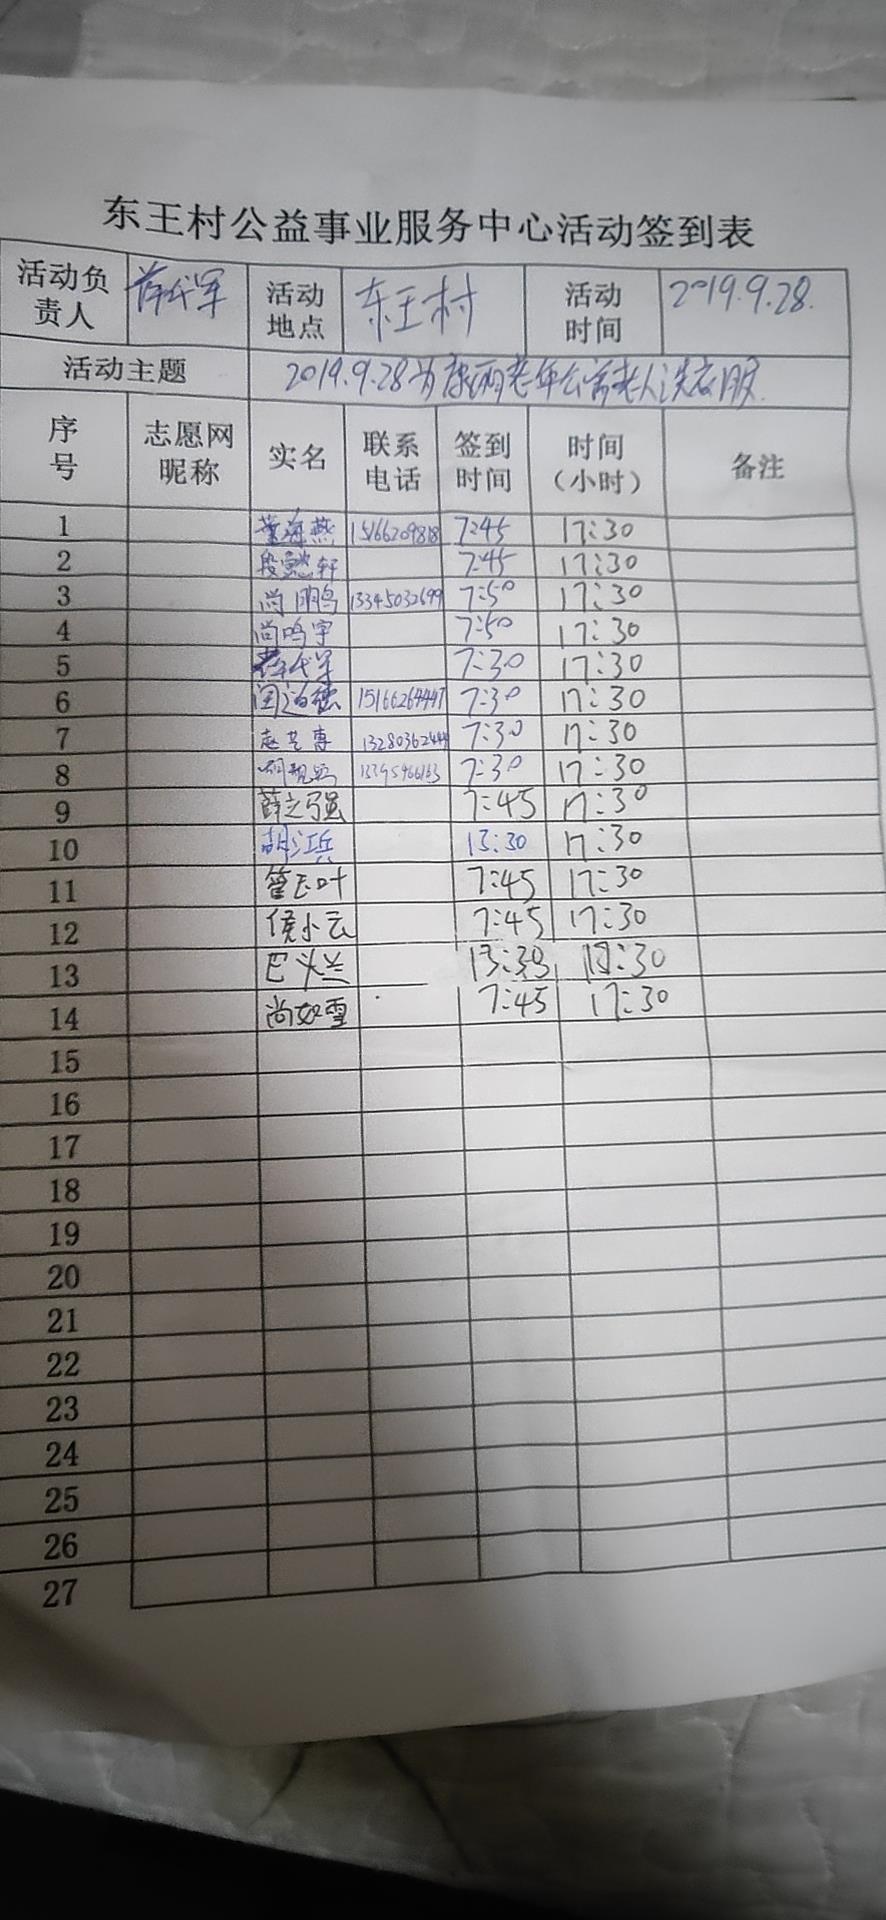 东王村公益事业服务中心活动签到表
活动负责人 薛代军 活动地点 东王村 活动时间 2019.9.28.
活动主题 2019.9.28为康丽老年公寓老人洗衣服.
序号 志愿网昵称 实名 联系电话 签到时间 时间（小时） 备注
1 董海燕 15166209818 7:45 17:30
2 段懿轩 7:45 17:30
3 尚鹏 13345032699 7:50 17:30
4 尚鸣宇 7:50 17:30
5 薛代军 7:30 17:30
6 15166264447 7:30 17:30
7 7:30 17:30
8 7:30 17:30
9 薛之强 7:45 17:30
10 胡江兵 13:30 17:30
11 管玉叶 7:45 17:30
12 侯小云 7:45 17:30
13 17:30
14 尚如雪 7:45 17:30
15
16
17
18
19
20
21
22
23
24
25
26
27